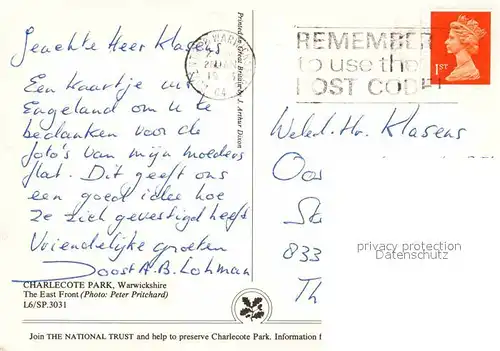 Geachte Heer Klasens
Een kaartje uit
Engeland om u te
bedanken voor de
foto's van mijn moeders
flat. Dit geeft ons
een goed idee hoe
ze zich gevestigd heeft
Vriendelijke groeten
Joost A.B. Lohman
CHARLECOTE PARK, Warwickshire
The East Front (Photo: Peter Pritchard)
L6/SP.3031
Join THE NATIONAL TRUST and help to preserve Charlecote Park. Information f
Printed in Great Britain by J. Arthur Dixon
REMEMBER
to use the
POST CODE
1ST
Weled. Hr. Klasens
Oos
Ste
833
Th
privacy protection
Datenschutz